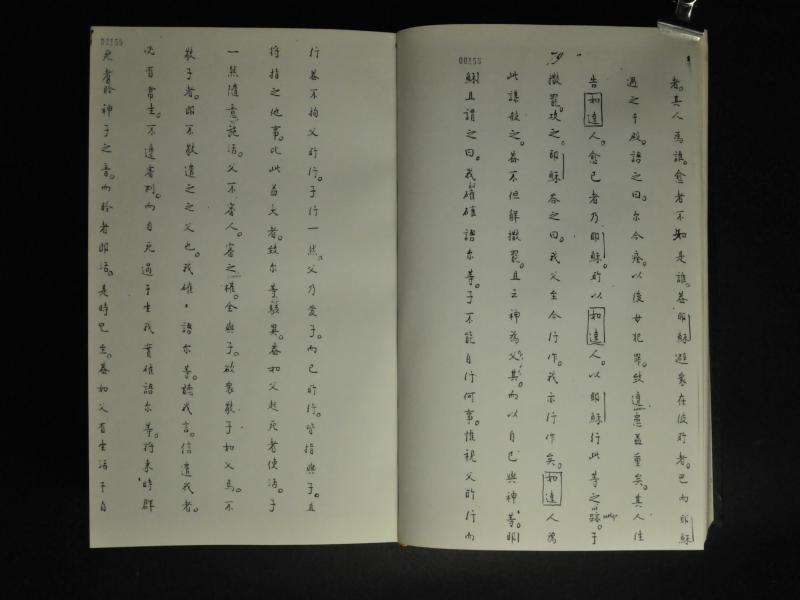 00155
者。其人為誰。愈者不知是誰。蓋耶穌避眾在彼所者。已而耶穌
遇之于殿。語之曰。尔今痊。以後毋犯罪。致遭患益重矣。其人往
告和達人。愈已者乃耶穌。所以和達人。以耶穌行此等之跡。于
撒罷。攻之。耶穌答之曰。我父至今行作。我亦行作矣。和達人為
此謀殺之。蓋不但解撒罷。且云神為父其。而以自己與神等。耶
穌且謂之曰。我確確語尔等。子不能自行何事。惟視父所行而
00156
行。蓋不拘父所行。子行一然。父乃愛子。而已所行。皆指與子。且
將指之他事。比此茲大者。致尔等駭異。蓋和父起死者使活。子
一然隨意施活。父不審人。審之權全與子。欲眾敬子和父焉。不
敬子者。即不敬遣之之父也。我確確語尔等。聽我言。信遣我者。
必有常生。不遭審判。而自死過于生我實確語尔等。將來時群
死者聆神子之音。而聆者即活。是時已至。蓋如父有生活于自